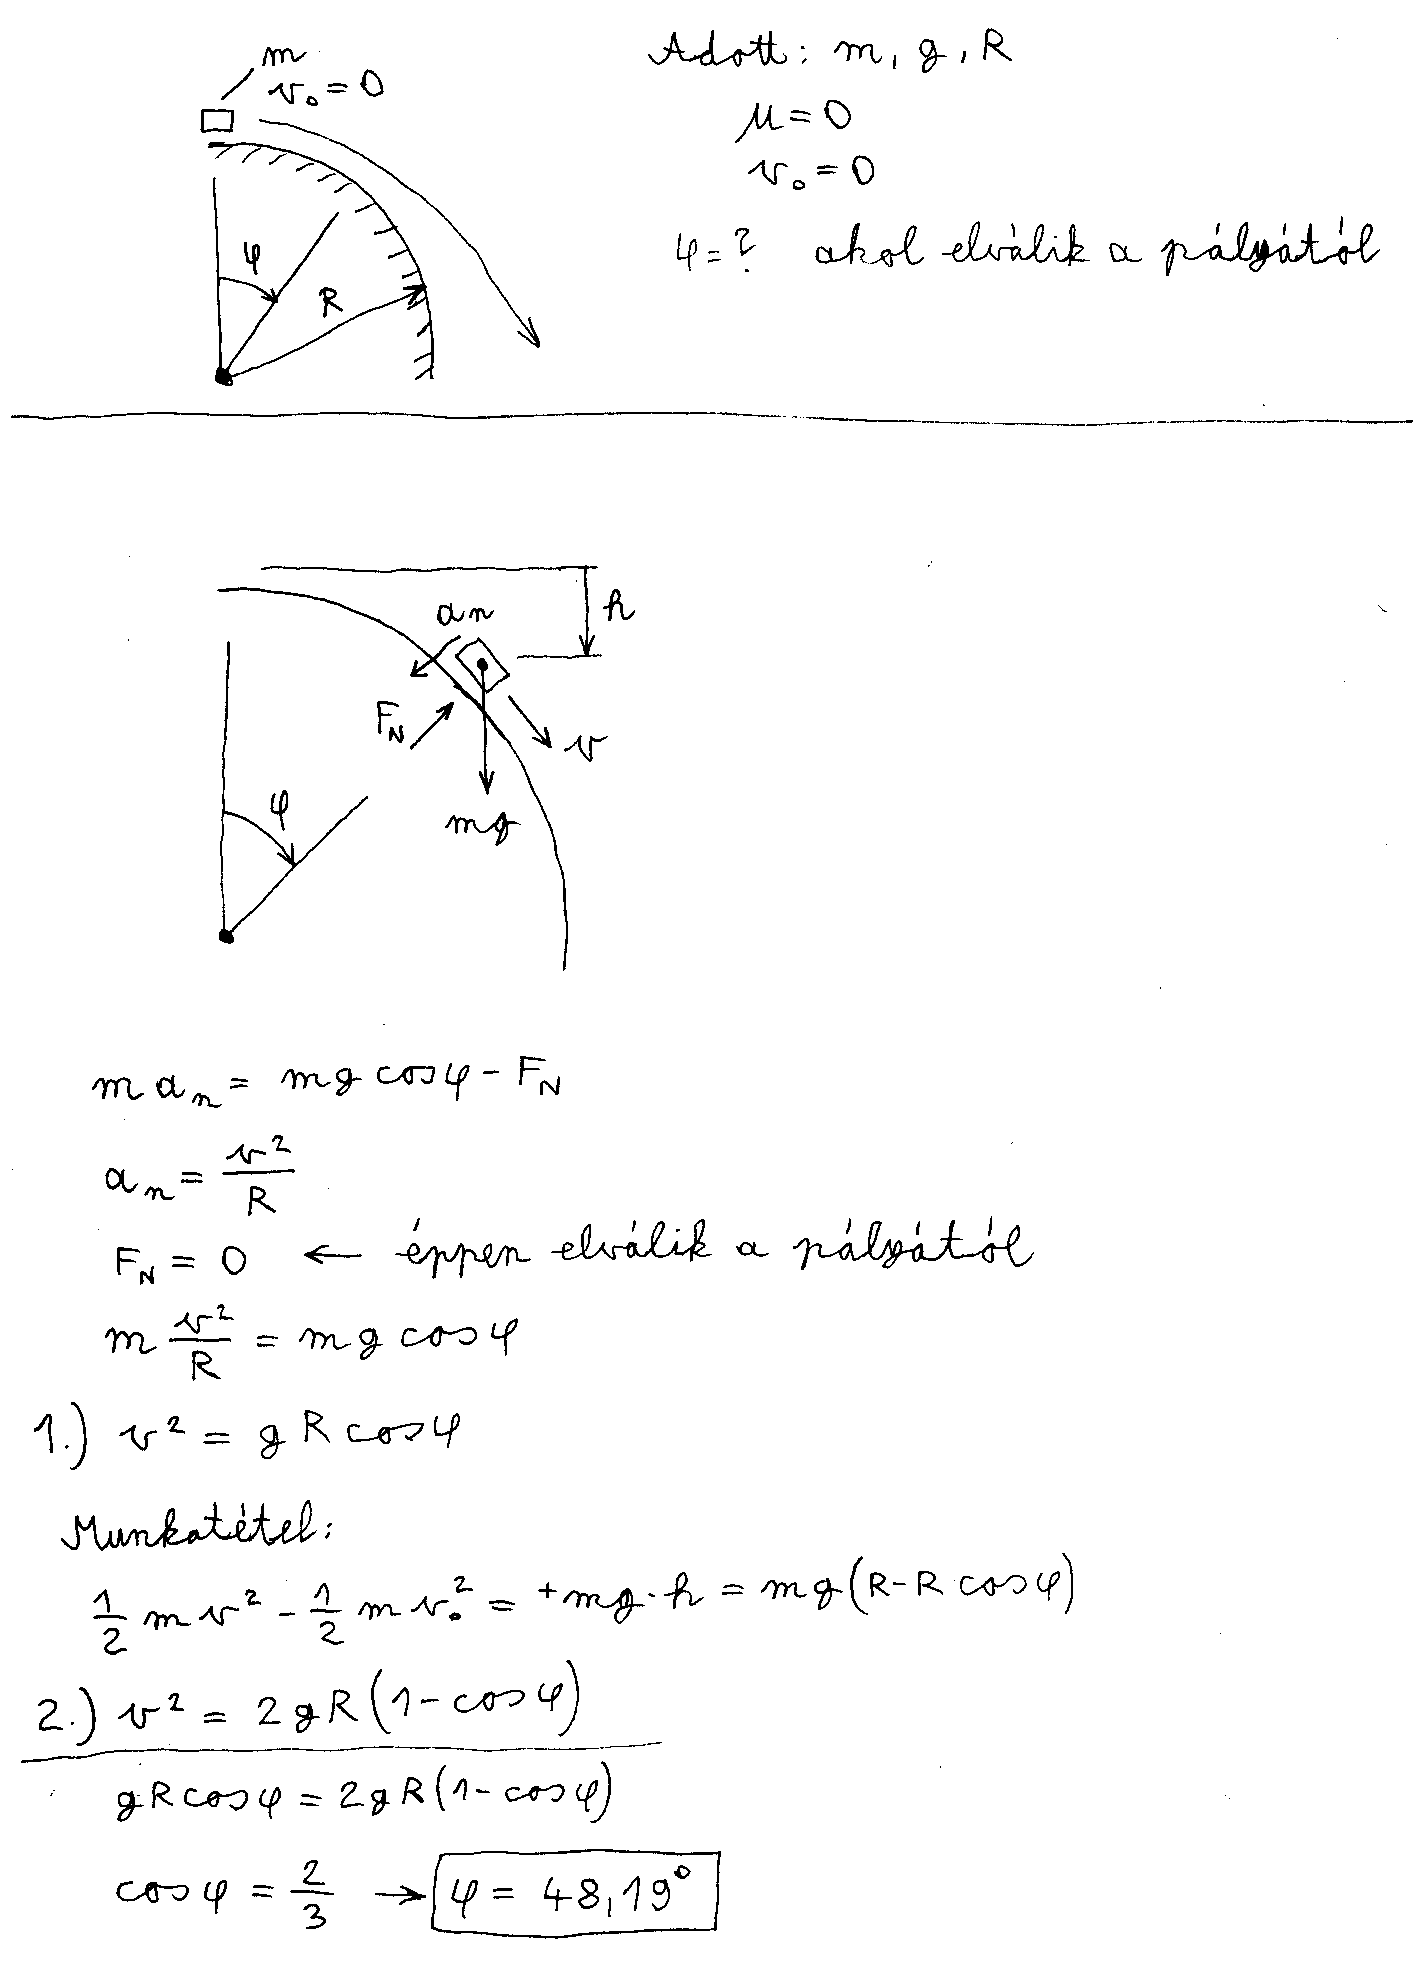 m
v₀ = 0
Adott: m, g, R
μ = 0
v₀ = 0
φ = ? ahol elválik a pályától
φ
R
h
aₙ
F_N
v
mg
φ
m aₙ = mg cosφ - F_N
aₙ = v²/R
F_N = 0 ← éppen elválik a pályától
m v²/R = mg cosφ
1.) v² = g R cosφ
Munkatétel:
1/2 m v² - 1/2 m v₀² = +mg·h = mg(R-R cosφ)
2.) v² = 2gR(1-cosφ)
gR cosφ = 2gR(1-cosφ)
cosφ = 2/3 → φ = 48,19°